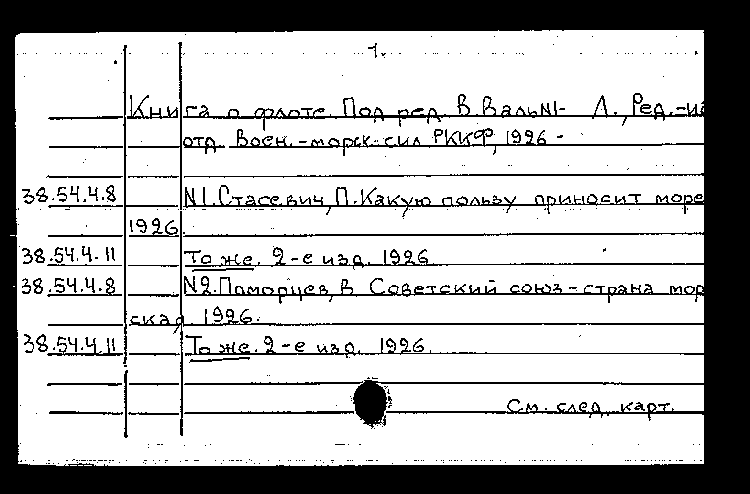 1.
Книга о флоте. Под ред. В. Валь N1- Л., Ред.-из
отд. Воен.-морск. сил РККФ, 1926 -
38.54.4.8 N1. Стасевич, П. Какую пользу приносит море
1926.
38.54.4.11 То же. 2-е изд. 1926.
38.54.4.8 N2. Поморцев, В. Советский союз - страна мор
ская 1926.
38.54.4.11 То же. 2-е изд. 1926.
См. след. карт.